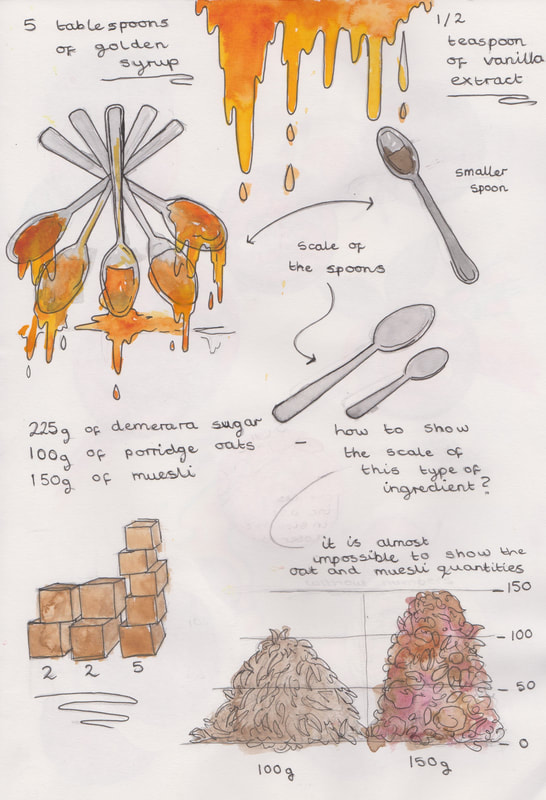 5 tablespoons
of golden
syrup
1/2
teaspoon
of vanilla
extract
smaller
spoon
scale of
the spoons
225g of demerara sugar
100g of porridge oats
150g of muesli
- how to show
the scale of
this type of
ingredient?
it is almost
impossible to show the
oat and muesli quantities
2 2 5
150
100
50
0
100g
150g